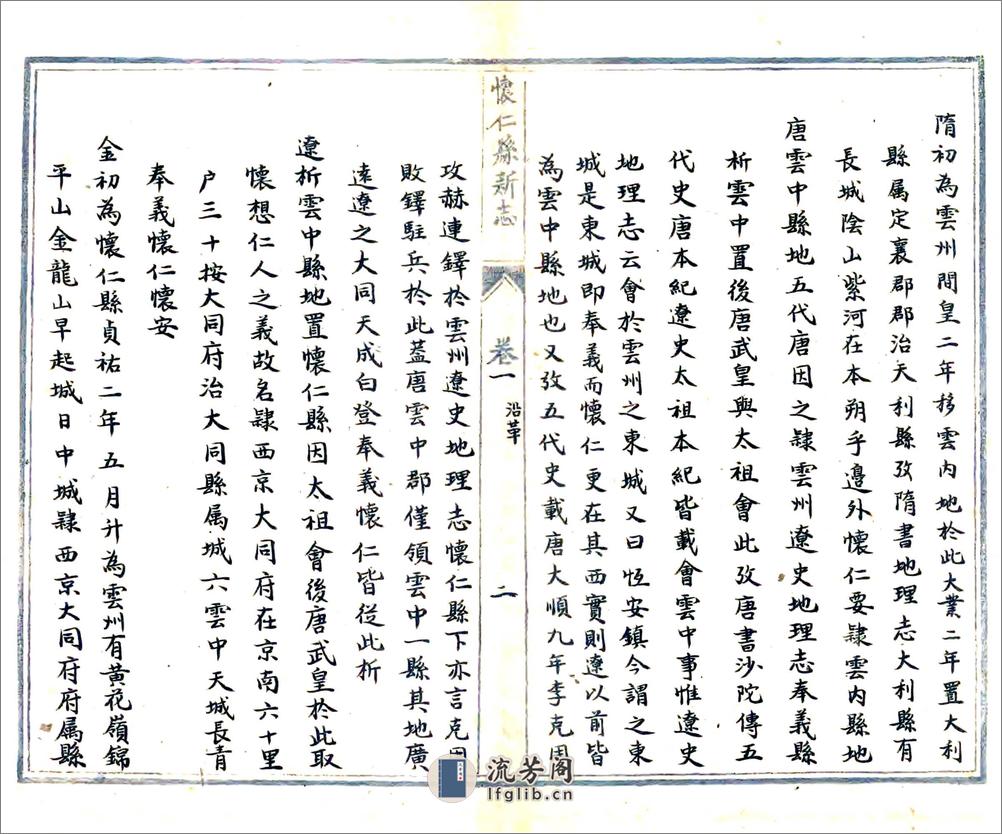 隋初為雲州間皇二年移雲內地於此大業二年置大利
縣属定襄郡郡治天利縣攷隋書地理志大利縣有
長城陰山紫河在本朔乎邊外懷仁要隸雲內縣地
唐雲中縣地五代唐因之隸雲州遼史地理志奉義縣
析雲中置後唐武皇與太祖會此攷唐書沙陀傳五
代史唐本紀遼史太祖本紀皆載會雲中事惟遼史
地理志云會於雲州之東城又曰恆安鎮今謂之東
城是東城即奉義而懷仁更在其西實則遼以前皆
為雲中縣地也又攷五代史載唐大順九年李克用
懷仁縣新志
卷一
沿革
二
攻赫連鐸於雲州遼史地理志懷仁縣下亦言克用
敗鐸駐兵於此蓋唐雲中郡僅領雲中一縣其地廣
遠遼之大同天成白登奉義懷仁皆從此析
遼析雲中縣地置懷仁縣因太祖會後唐武皇於此取
懷想仁人之義故名隸西京大同府在京南六十里
户三十按大同府治大同縣属城六雲中天城長青
奉義懷仁懷安
金初為懷仁縣貞祐二年五月升為雲州有黃花嶺錦
平山金龍山早起城日中城隸西京大同府府属縣
流芳阁
lfglib.cn